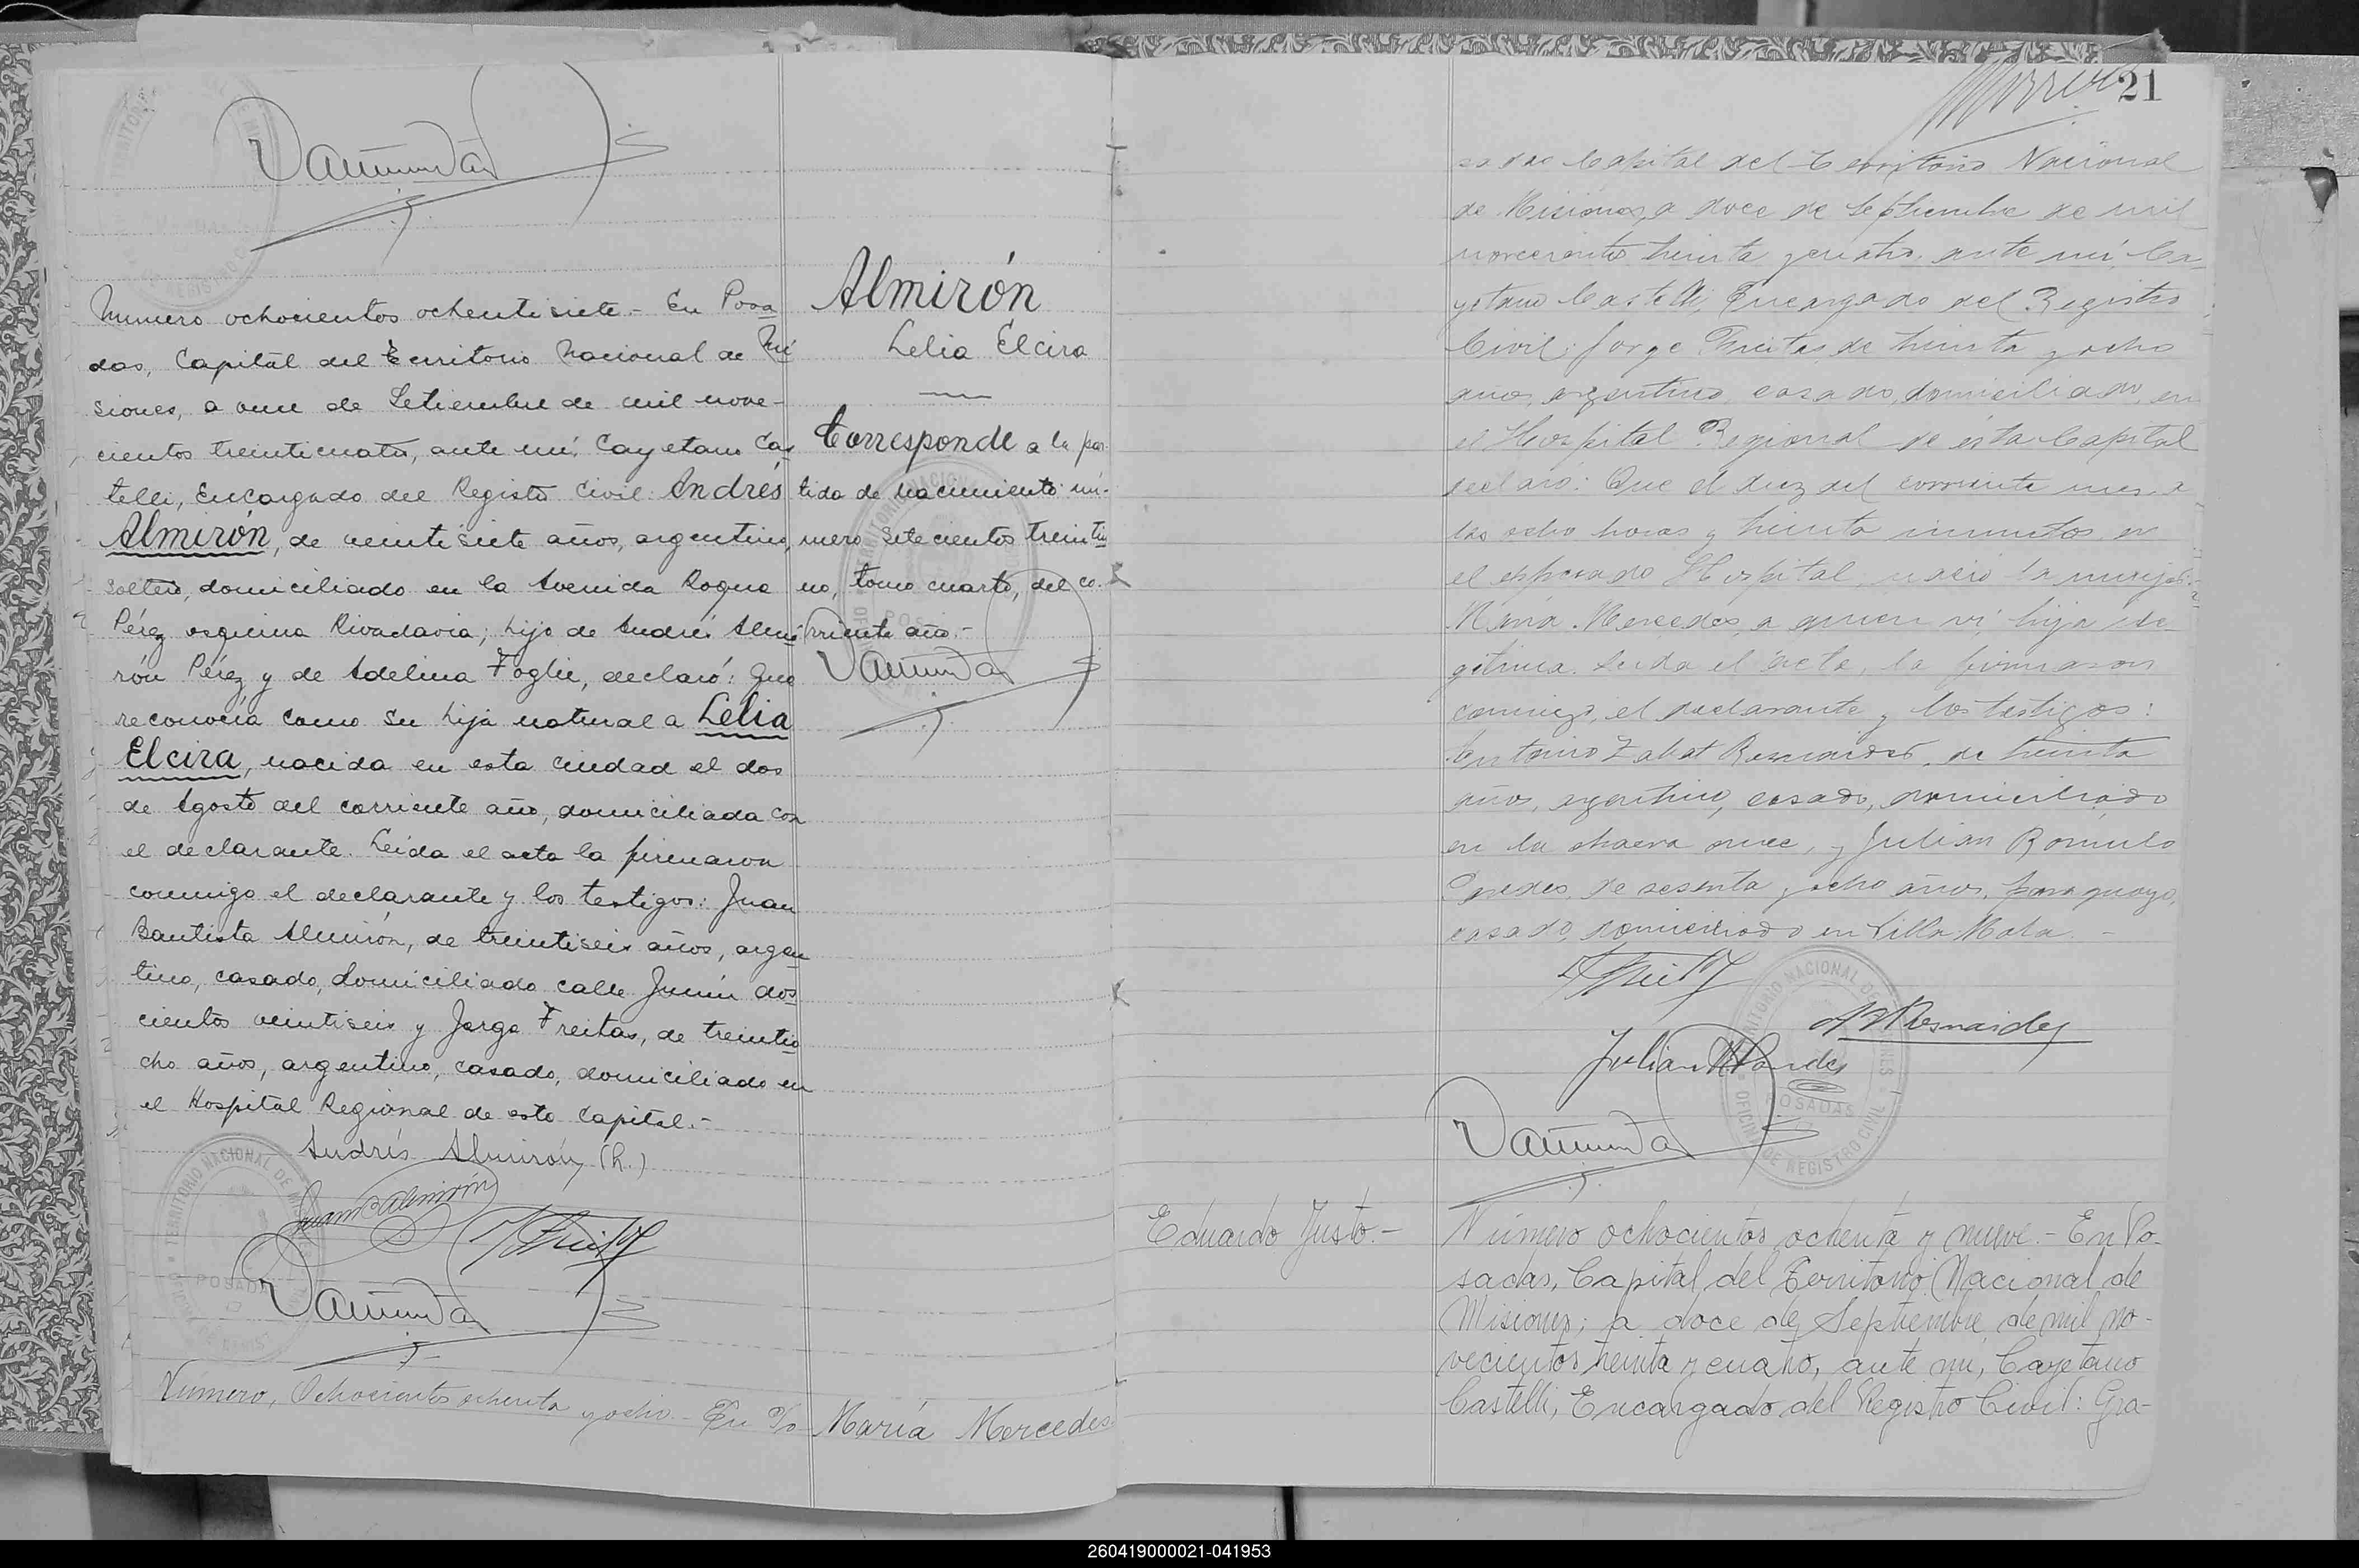 Numero ochocientos ochentisiete.- En Posa
das, Capital del Territorio Nacional de Mi
siones, a once de Setiembre de mil nove-
cientos treinticuatro, ante mí: Cayetano Cas
telli, Encargado del Registro Civil: Andrés
Almirón, de veintisiete años, argentino,
soltero, domiciliado en la Avenida Roque
Pérez esquina Rivadavia; hijo de Andrés Almi
rón Pérez y de Adelina Foglie, declaró: Que
reconocía como su hija natural a Lelia
Elcira, nacida en esta ciudad el dos
de Agosto del corriente año, domiciliada con
el declarante. Leida el acta la firmaron
conmigo el declarante y los testigos: Juan
Bautista Almirón, de treintiseis años, argen
tino, casado, domiciliado calle Junín dos
cientos veintiseis y Jorge Freitas, de treintio
cho años, argentino, casado, domiciliado en
el Hospital Regional de esta Capital.-
Andrés Almirón (h.)
Juan B Almirón
Almirón
Lelia Elcira
Corresponde a la par
tida de nacimiento nú-
mero setecientos treintiu
no, tomo cuarto, del co-
rriente año.-
Número, Ochocientos ochenta y ocho.- En Po
María Mercedes
21
sadas Capital del Territorio Nacional
de Misiones, a doce de Septiembre de mil
novecientos treinta y cuatro, ante mí, Ca-
yetano Castelli, Encargado del Registro
Civil: Jorge Freitas de treinta y ocho
años, argentino, casado, domiciliado, en
el Hospital Regional de esta Capital
declaró: Que el diez del corriente mes, a
las ocho horas y treinta minutos, en
el expresado Hospital, nació la mujer
María Mercedes, a quien ví, hija ile-
gítima. Leida el acta, la firmaron
conmigo, el declarante y los testigos:
Antonio Zabat Resnaider, de treinta
años, argentino, casado, domiciliado
en la chacra once, y Julian Romulo
de sesenta y ocho años, paraguayo,
casado, domiciliado en Villa Mola.-
TERRITORIO NACIONAL DE MISIONES
OFICINA DE REGISTRO CIVIL
POSADAS
Eduardo Justo.-
Número ochocientos ochenta y nueve.- En Po-
sadas, Capital del Territorio Nacional de
Misiones; a doce de Septiembre de mil no-
vecientos treinta y cuatro, ante mí, Cayetano
Castelli, Encargado del Registro Civil: Gra-
260419000021-041953